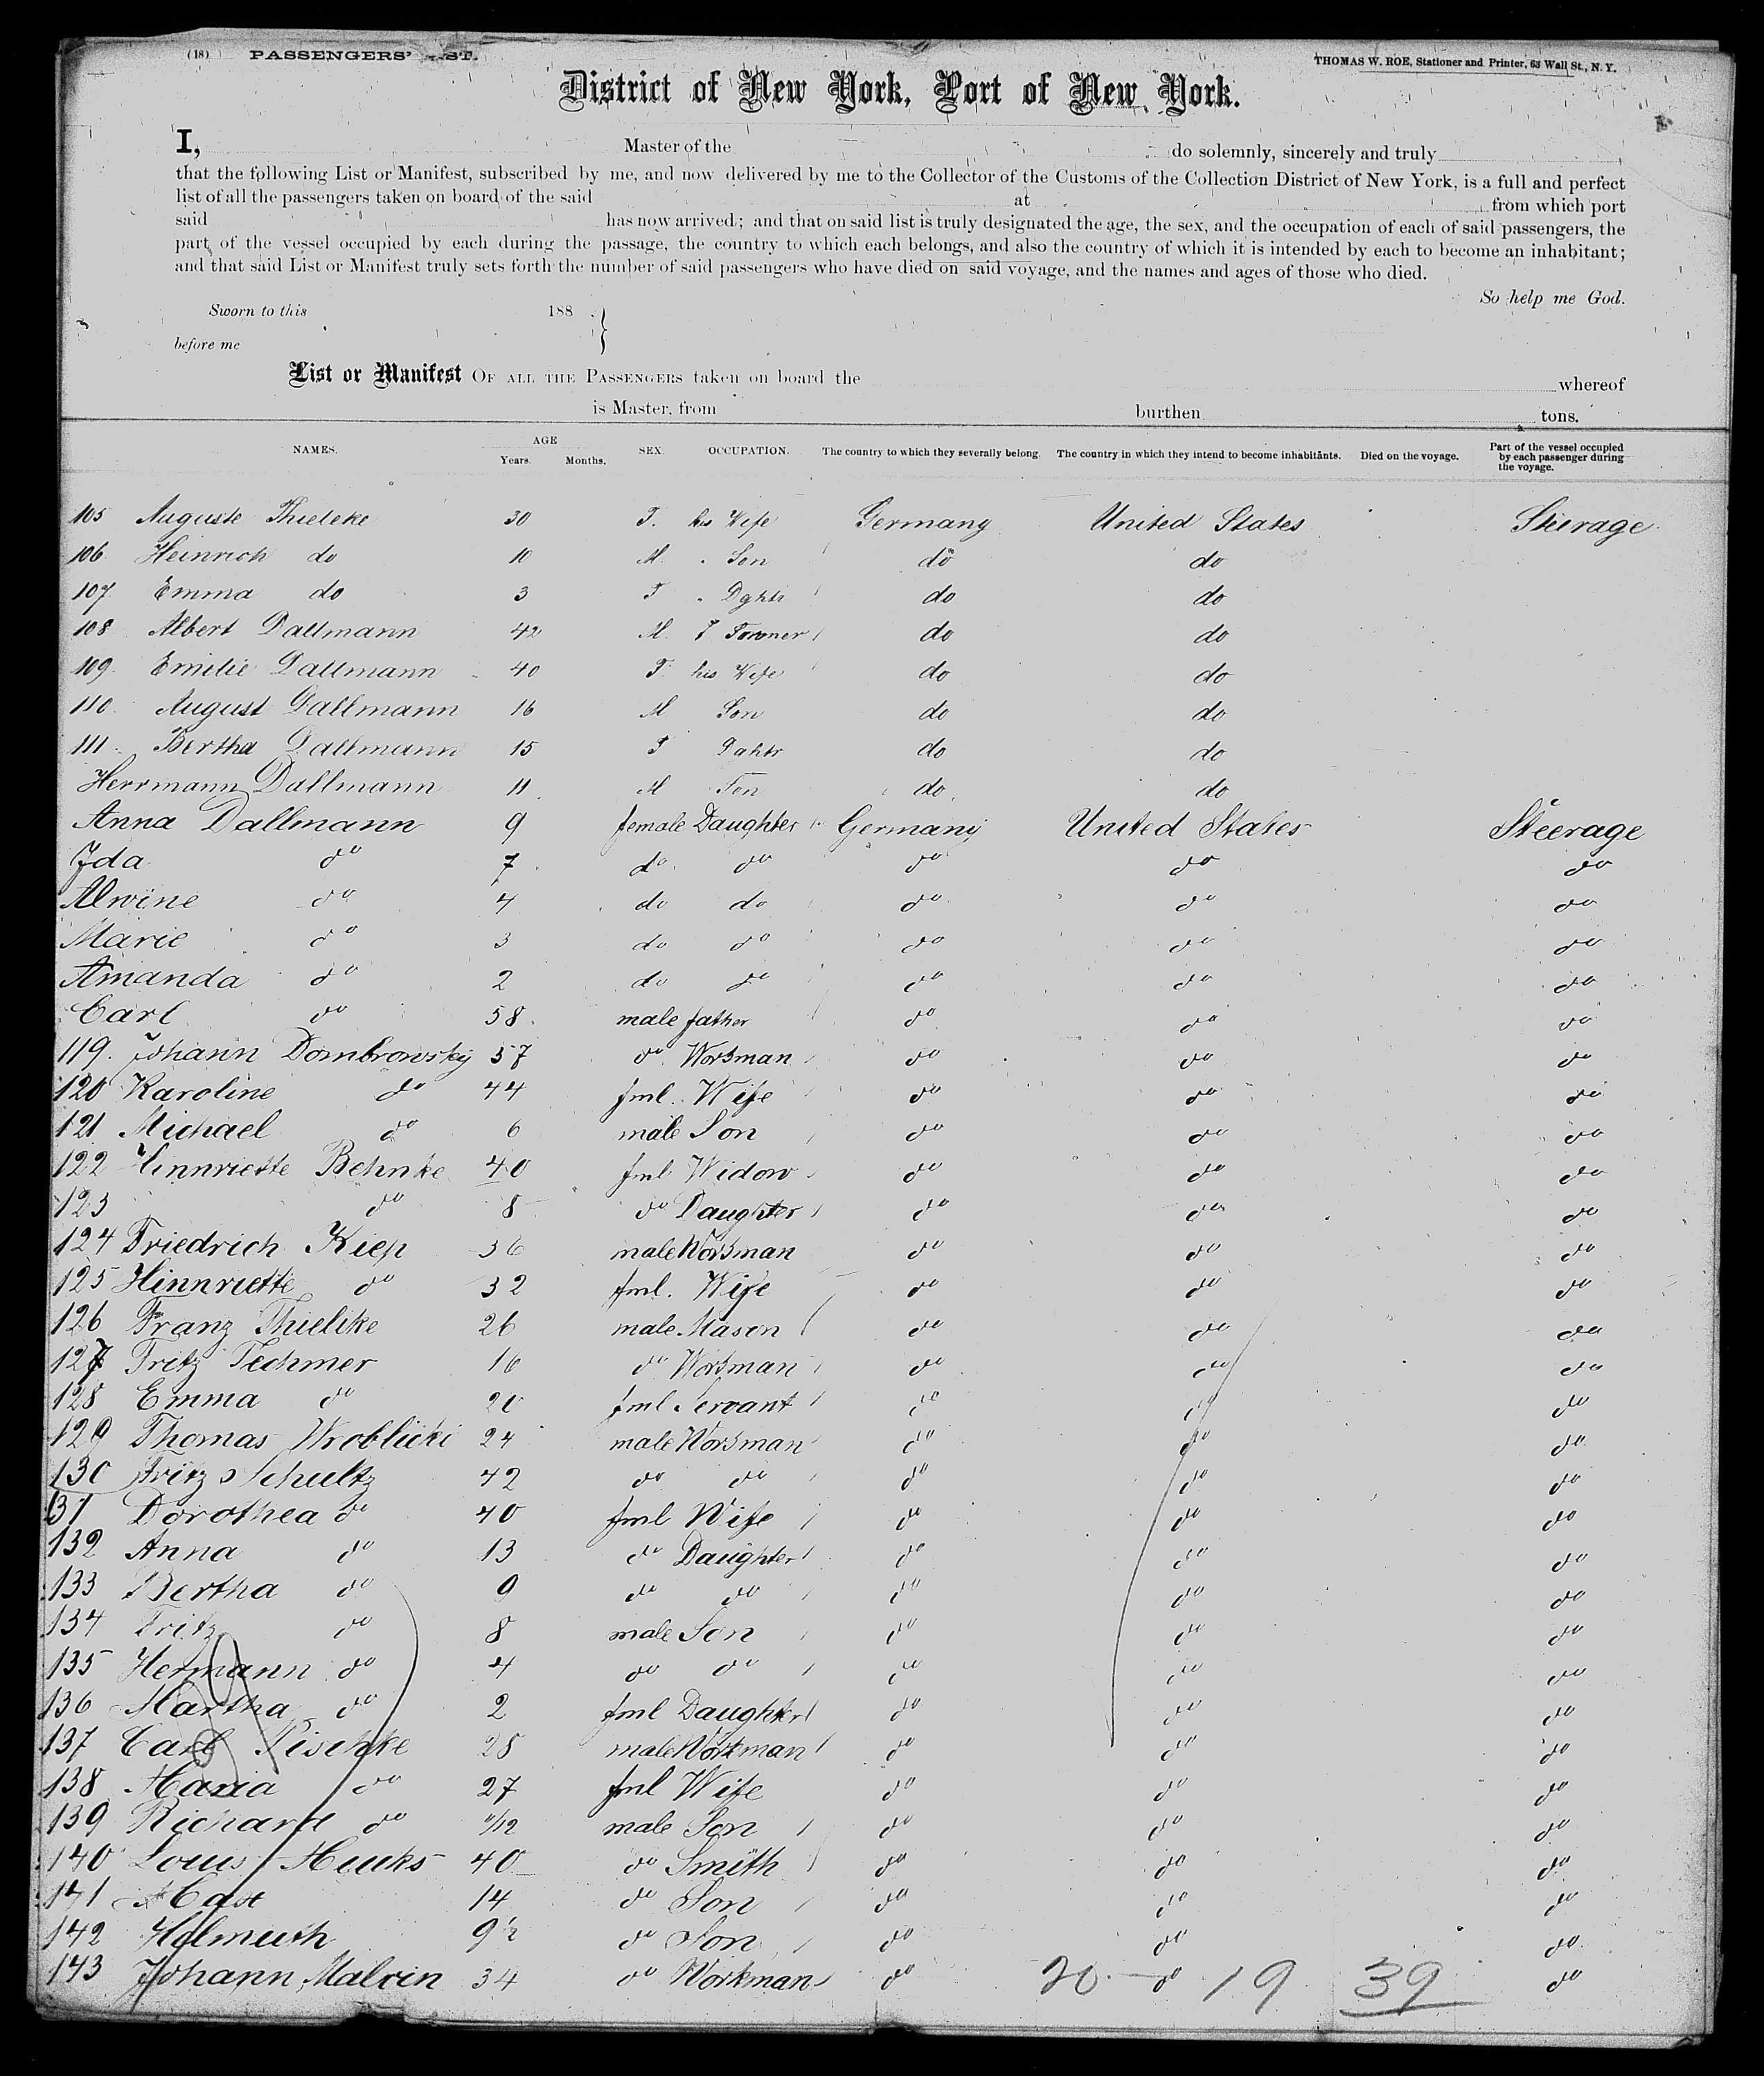 (18) PASSENGERS' ST.
THOMAS W. ROE, Stationer and Printer, 63 Wall St., N. Y.
District of New York, Port of New York.
I, Master of the do solemnly, sincerely and truly
that the following List or Manifest, subscribed by me, and now delivered by me to the Collector of the Customs of the Collection District of New York, is a full and perfect
list of all the passengers taken on board of the said at from which port
said has now arrived; and that on said list is truly designated the age, the sex, and the occupation of each of said passengers, the
part of the vessel occupied by each during the passage, the country to which each belongs, and also the country of which it is intended by each to become an inhabitant;
and that said List or Manifest truly sets forth the number of said passengers who have died on said voyage, and the names and ages of those who died.
So help me God.
Sworn to this 188
before me
List or Manifest OF ALL THE PASSENGERS taken on board the whereof
is Master, from burthen tons.
NAMES. AGE Years. Months. SEX. OCCUPATION. The country to which they severally belong. The country in which they intend to become inhabitants. Died on the voyage. Part of the vessel occupied by each passenger during the voyage.
105 Auguste Thieleke 30 F. his Wife Germany United States Steerage
106 Heinrich do 10 M. " Son do do
107 Emma do 3 F " Dghtr do do
108 Albert Dallmann 42 M. do do
109 Emilie Dallmann 40 F. his Wife do do
110 August Dallmann 16 M Son do do
111 Bertha Dallmann 15 F Dghtr do do
Herrmann Dallmann 11 M Son do do
Anna Dallmann 9 female Daughter Germany United States Steerage
Ida do 7 do do do do do
Alwine do 4 do do do do do
Marie do 3 do do do do do
Amanda do 2 do do do do do
Carl do 58 male father do do do
119. Johann Dombrowsky 57 do Workman do do do
120 Karoline do 44 fml. Wife do do do
121 Michael do 6 male Son do do do
122 Hinnriette Behnke 40 fml Widow do do do
123 do 8 do Daughter do do do
124 Friedrich Kiep 36 male Workman do do do
125 Hinnriette do 32 fml. Wife do do do
126 Franz Thielike 26 male Mason do do do
127 Fritz Techmer 16 do Workman do do do
128 Emma do 20 fml Servant do do do
129 Thomas Wroblicki 24 male Workman do do do
130 Fritz Schultz 42 do do do do do
131 Dorothea do 40 fml Wife do do do
132 Anna do 13 do Daughter do do do
133 Bertha do 9 do do do do do
134 Fritz do 8 male Son do do do
135 Hermann do 4 do do do do do
136 Martha do 2 fml Daughter do do do
137 Carl Pischke 28 male Workman do do do
138 Maria do 27 fml Wife do do do
139 Richard do 11/12 male Son do do do
140 Louis 40 do Smith do do do
141 14 do Son do do do
142 Helmuth 9½ do Son do do do
143 Johann Malvin 34 do Workman do 20 do 19 39 do